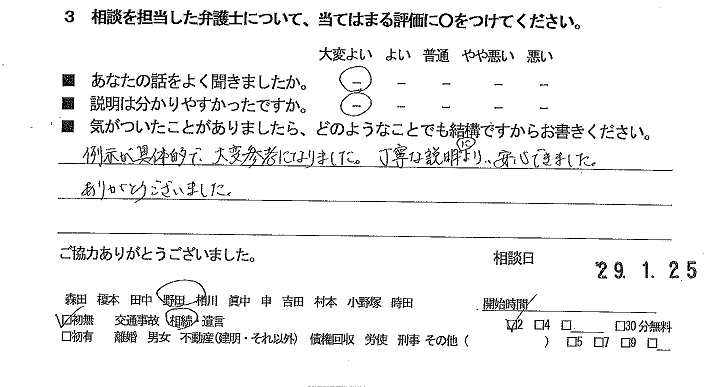 3 相談を担当した弁護士について、当てはまる評価に〇をつけてください。
大変よい よい 普通 やや悪い 悪い
■ あなたの話をよく聞きましたか。 － － － － －
■ 説明は分かりやすかったですか。 － － － － －
■ 気がついたことがありましたら、どのようなことでも結構ですからお書きください。
例示が具体的で、大変参考になりました。丁寧な説明により、安心できました。
ありがとうございました。
ご協力ありがとうございました。 相談日 29.1.25
森田 榎本 田中 野田 相川 眞中 申 吉田 村本 小野塚 時田 開始時間
☑初無 交通事故 相続・遺言 ☑2 □4 □ □30分無料
□初有 離婚 男女 不動産(建明・それ以外) 債権回収 労使 刑事 その他 ( ) □5 □7 □9 □